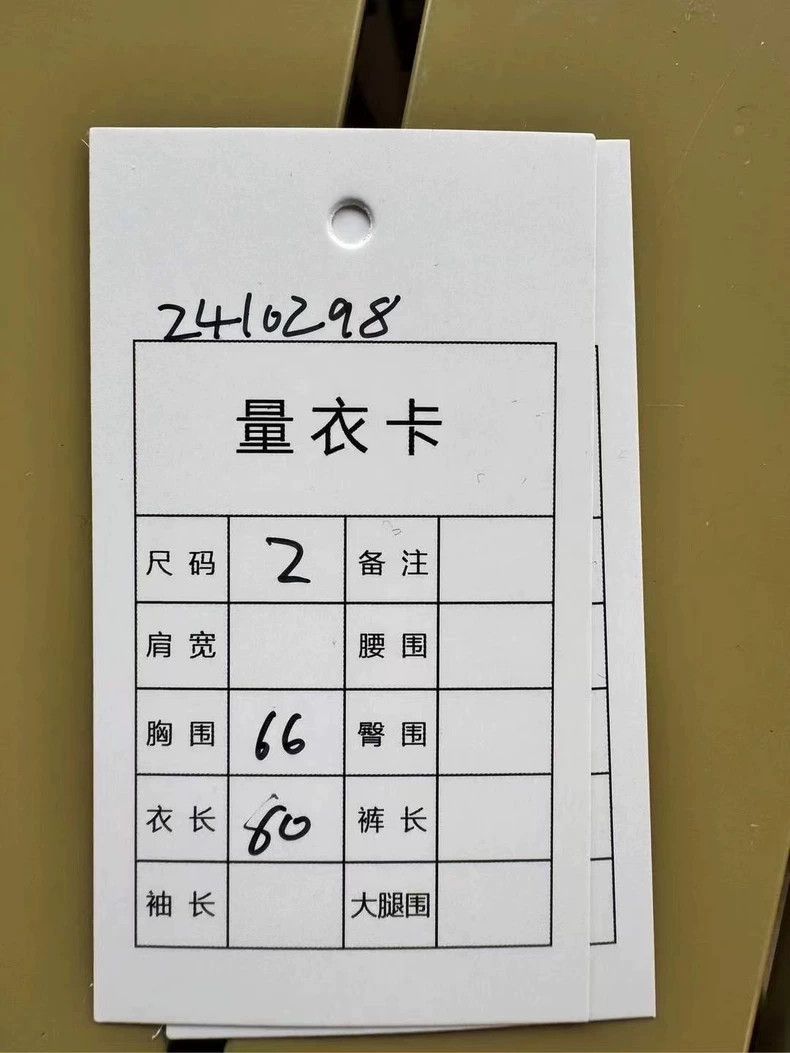 2410298
量衣卡
尺码 2 备注
肩宽 腰围
胸围 66 臀围
衣长 80 裤长
袖长 大腿围